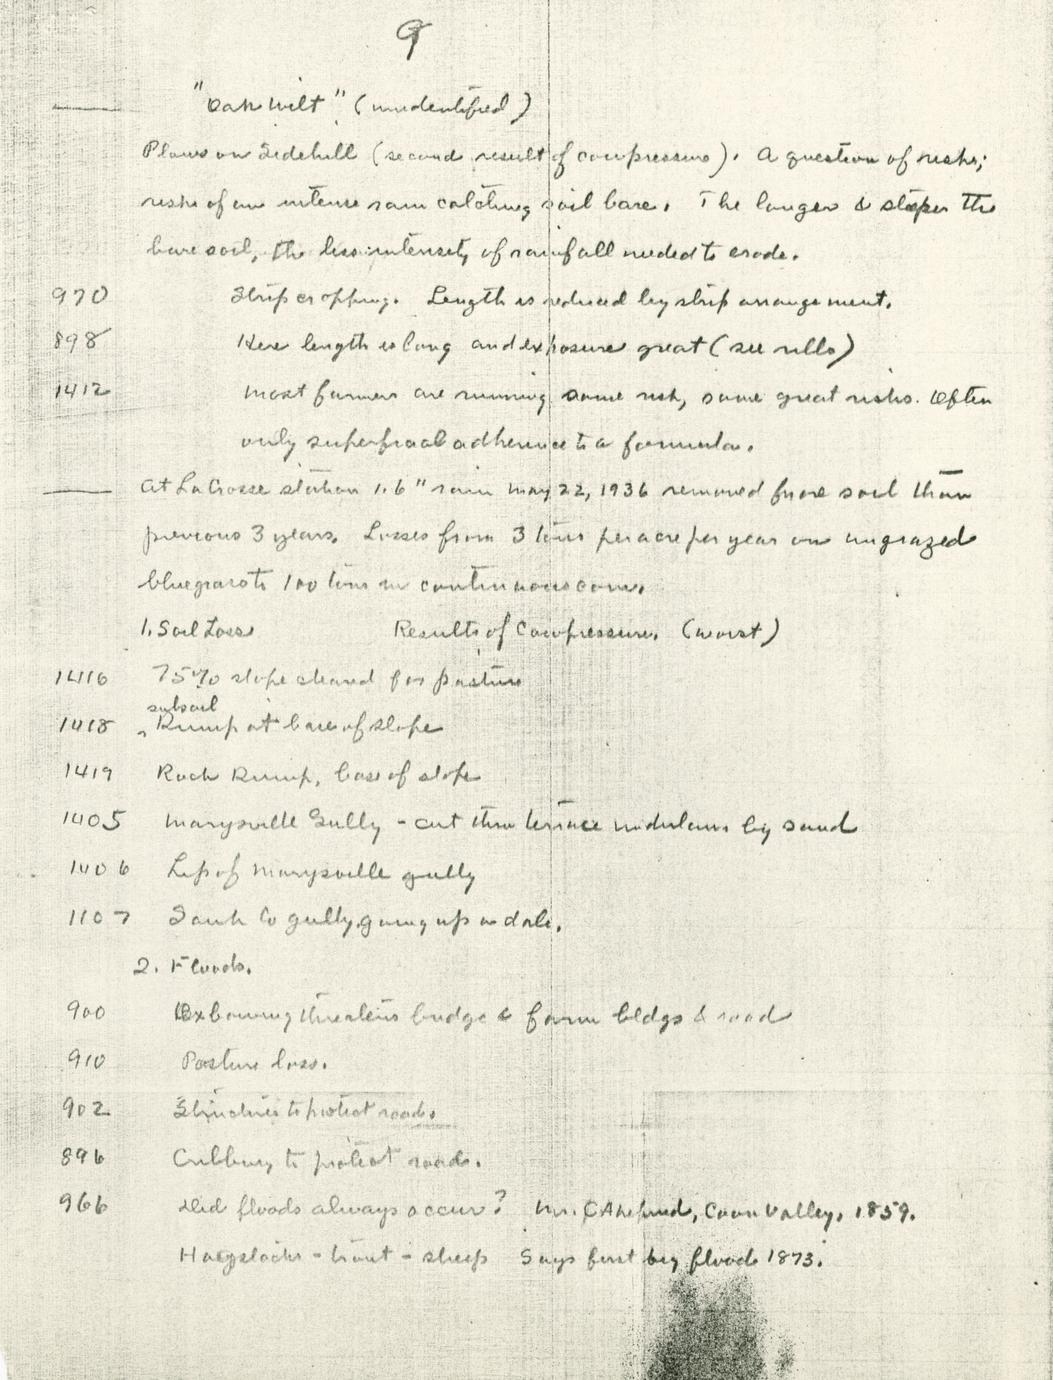 9
— "Oak Wilt" (unidentified)
Plows on Sidehill (second result of compressure). A question of risks;
risks of an intense rain catching soil bare. The longer & steeper the
bare soil, the less intensity of rainfall needed to erode.
970 Strip cropping. Length is reduced by strip arrangement.
898 Here length is long and exposure great (see rills)
1412 Most farmers are running some risk, some great risks. Often
only superficial adherence to a formula.
— At LaCrosse station 1.6" rain May 22, 1936 removed more soil than
previous 3 years. Losses from 3 tons per acre per year on ungrazed
bluegrass to 100 tons in continuous corn.
1. Soil Loss Results of Compressure. (worst)
1416 75% slope cleared for pasture
subsoil
1418 Rump at base of slope
1419 Rock Rump, base of slope
1405 Marysville Gully - cut thru terrace by sand
1406 Lip of Marysville gully
1107 Sauk Co gully going up a dale.
2. Floods.
900 Oxbowing threatens bridge & farm bldgs & road
910 Pasture loss.
902 to protect road.
896 Cribbing to protect road.
966 Did floods always occur? Mr. Coon Valley, 1859.
Haystacks - trout - sheep Says first big flood 1873.